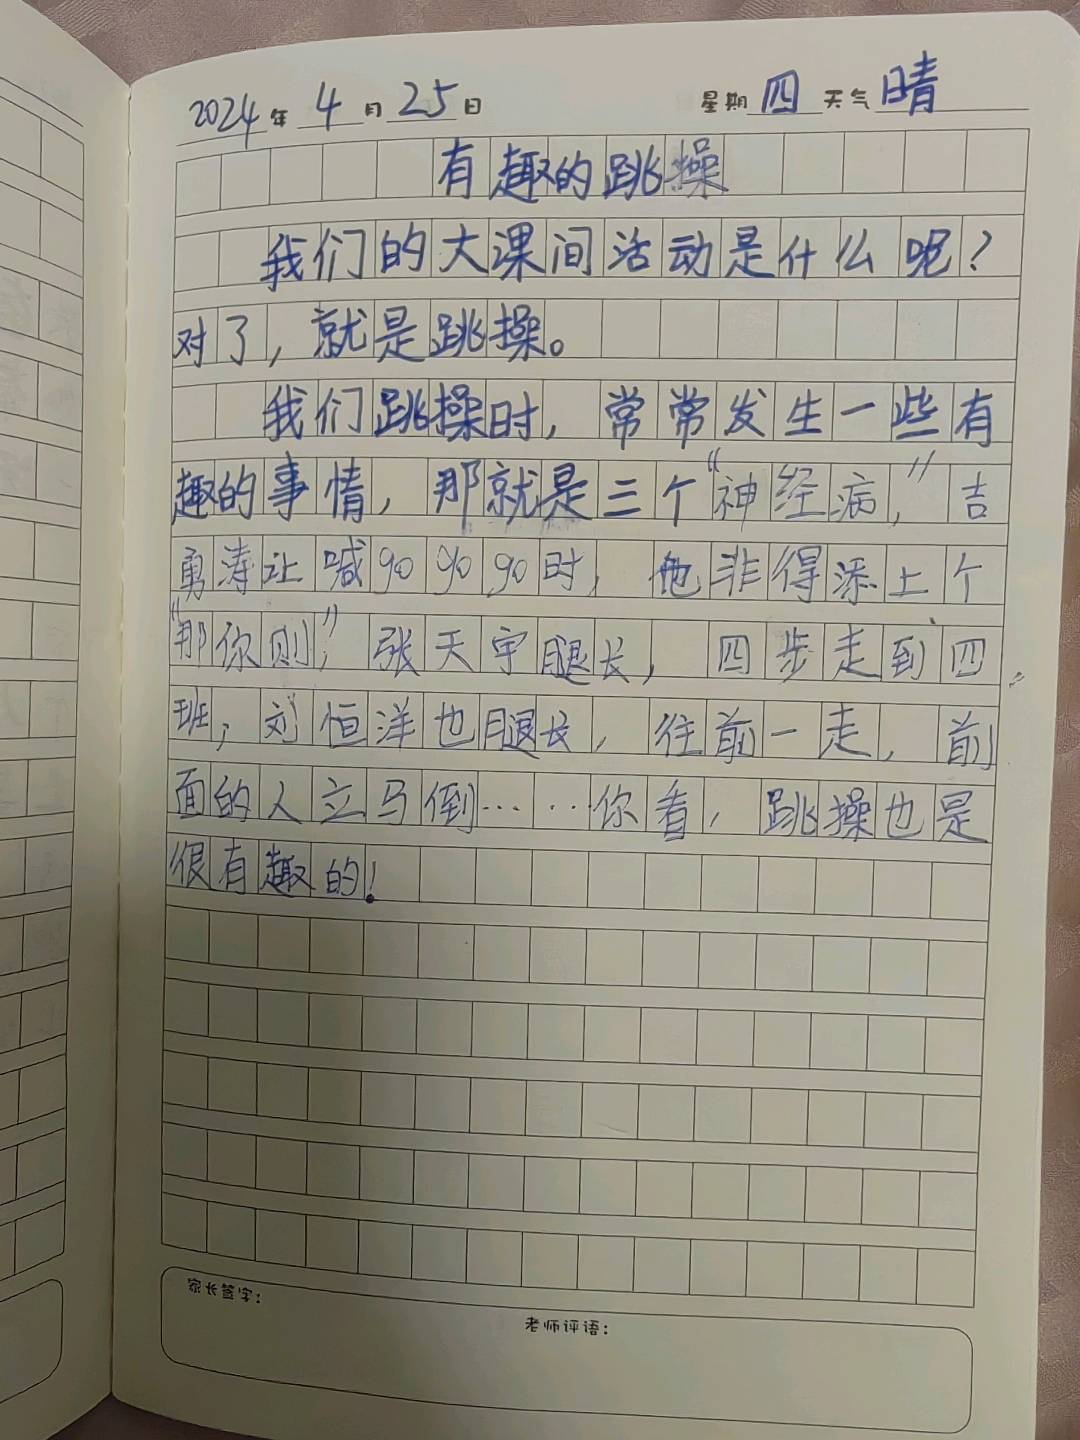 2024年4月25日 星期四天气晴
有趣的跳操
我们的大课间活动是什么呢？
对了，就是跳操。
我们跳操时，常常发生一些有
趣的事情，那就是三个“神经病，”吉
勇涛让喊go go go时，他非得添上个
“那你则，”张天宇腿长，四步走到四
班，刘恒洋也腿长，往前一走，前
面的人立马倒……你看，跳操也是
很有趣的！
家长签字：
老师评语：